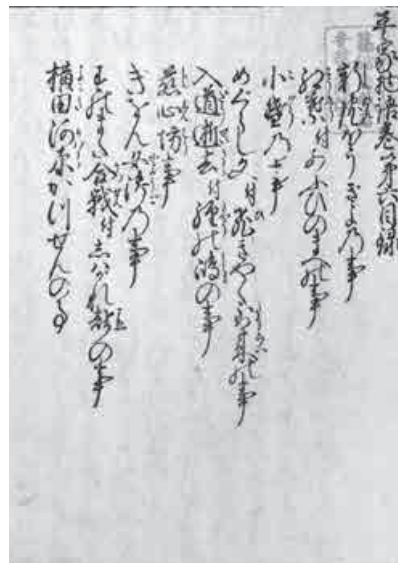 平家物語巻第六目録
新院ほうぎよの事
紅葉付あふひのまへの事
小督の事
めぐらし文付飛きやくたう来の事
入道逝去付経の嶋の事
慈心坊事
ぎをん女御の事
すのまた合戦付しはがれ聲の事
横田河原かつせんの事